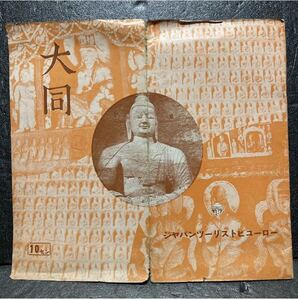 大同
ジャパンツーリストビューロー
10セン